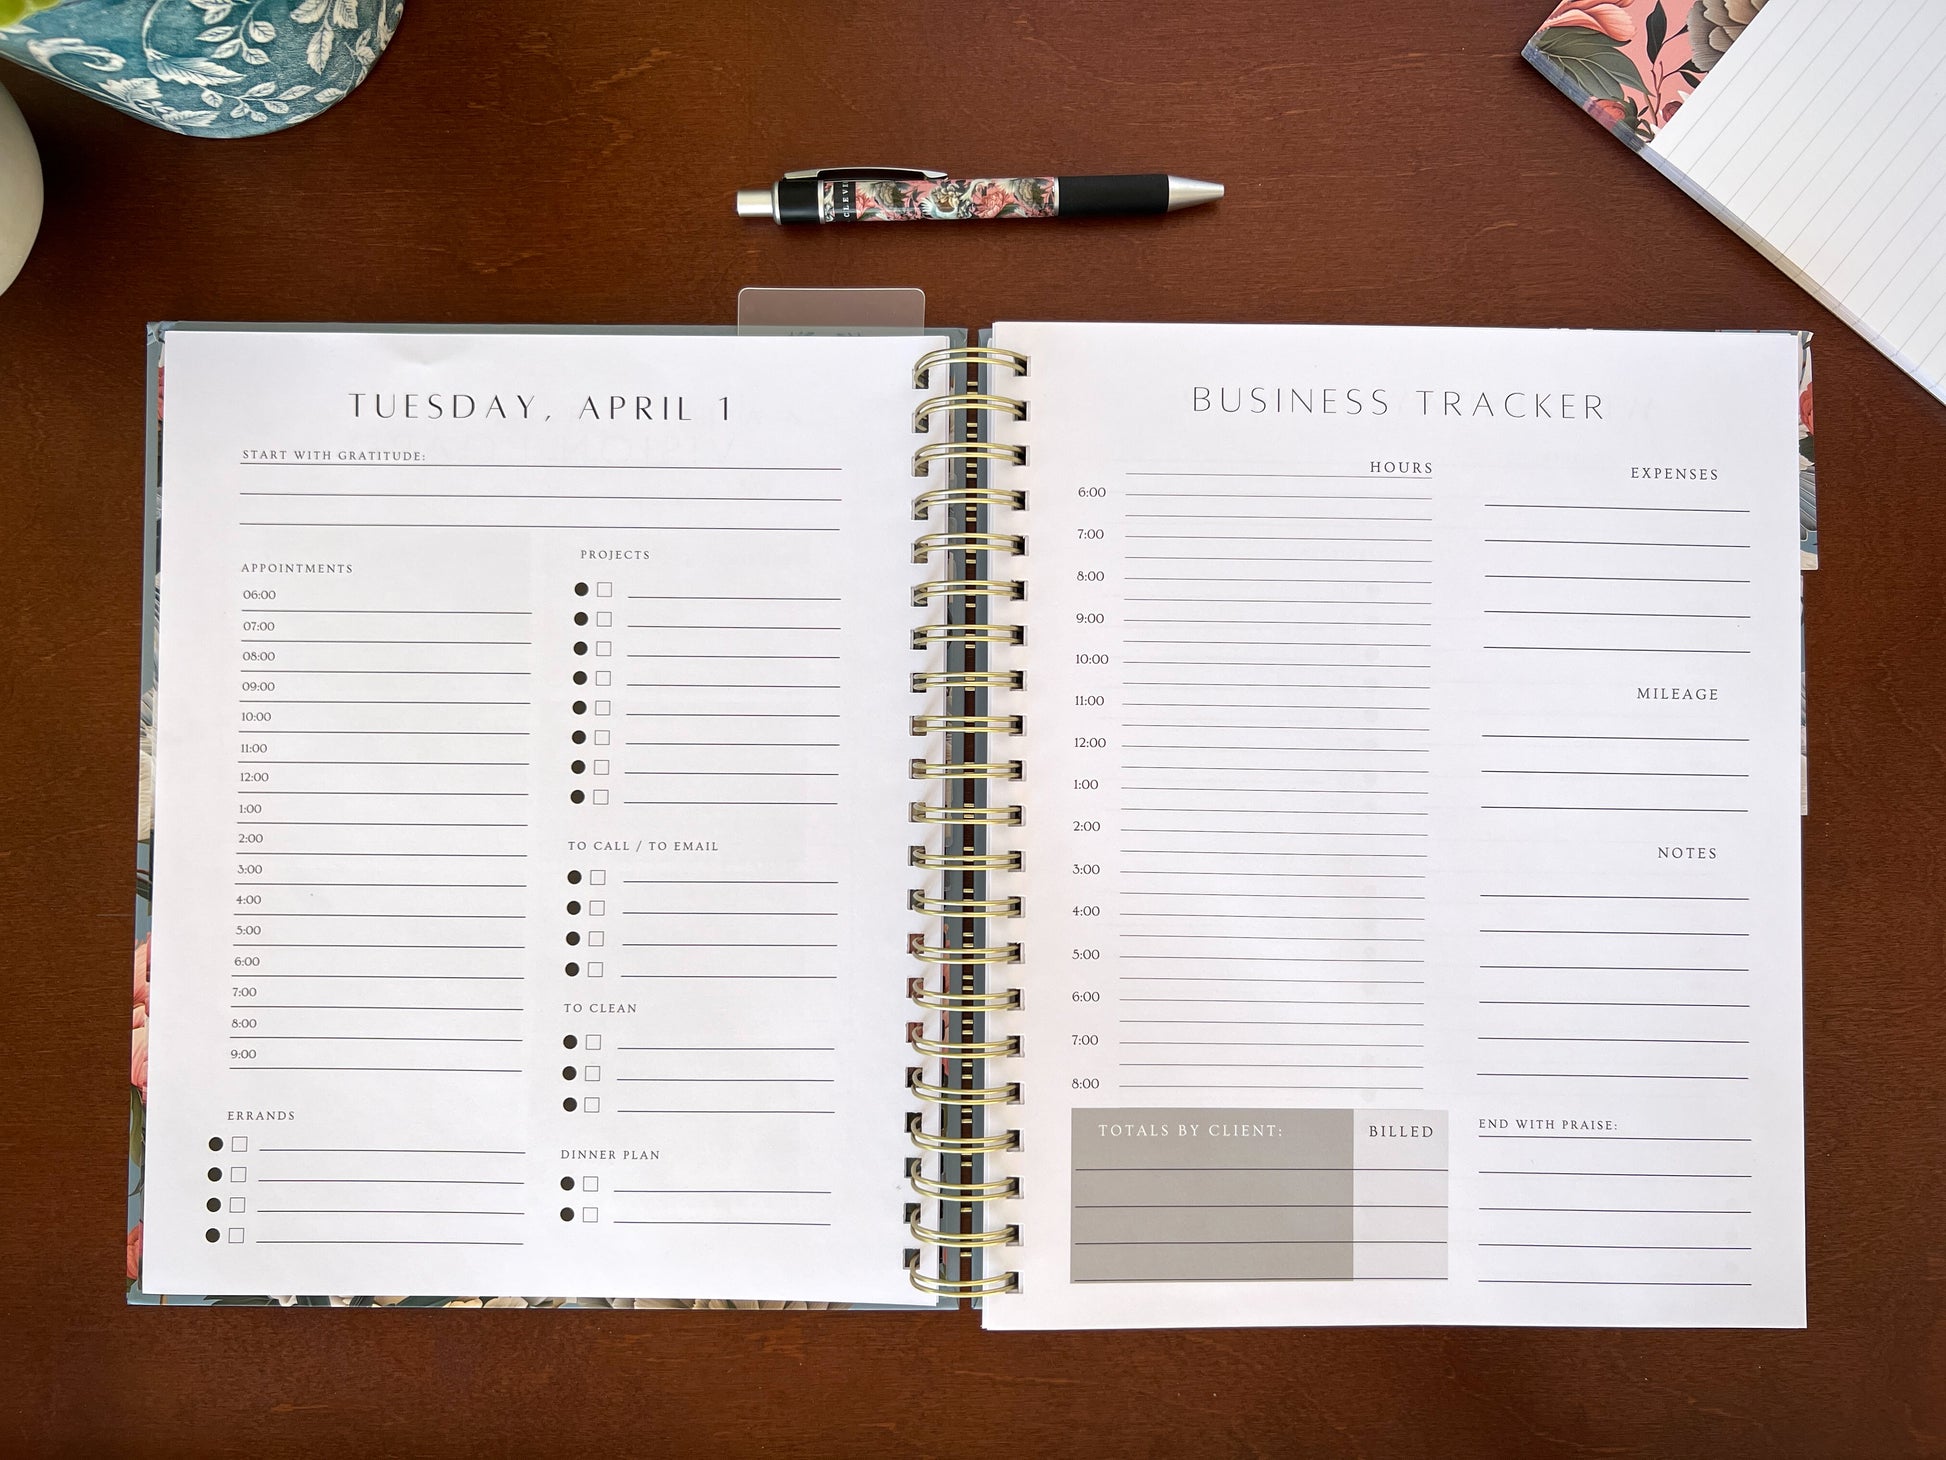 CLEVE
TUESDAY, APRIL 1
START WITH GRATITUDE:
APPOINTMENTS
06:00
07:00
08:00
09:00
10:00
11:00
12:00
1:00
2:00
3:00
4:00
5:00
6:00
7:00
8:00
9:00
ERRANDS
PROJECTS
TO CALL / TO EMAIL
TO CLEAN
DINNER PLAN
BUSINESS TRACKER
HOURS
6:00
7:00
8:00
9:00
10:00
11:00
12:00
1:00
2:00
3:00
4:00
5:00
6:00
7:00
8:00
TOTALS BY CLIENT: BILLED
EXPENSES
MILEAGE
NOTES
END WITH PRAISE: